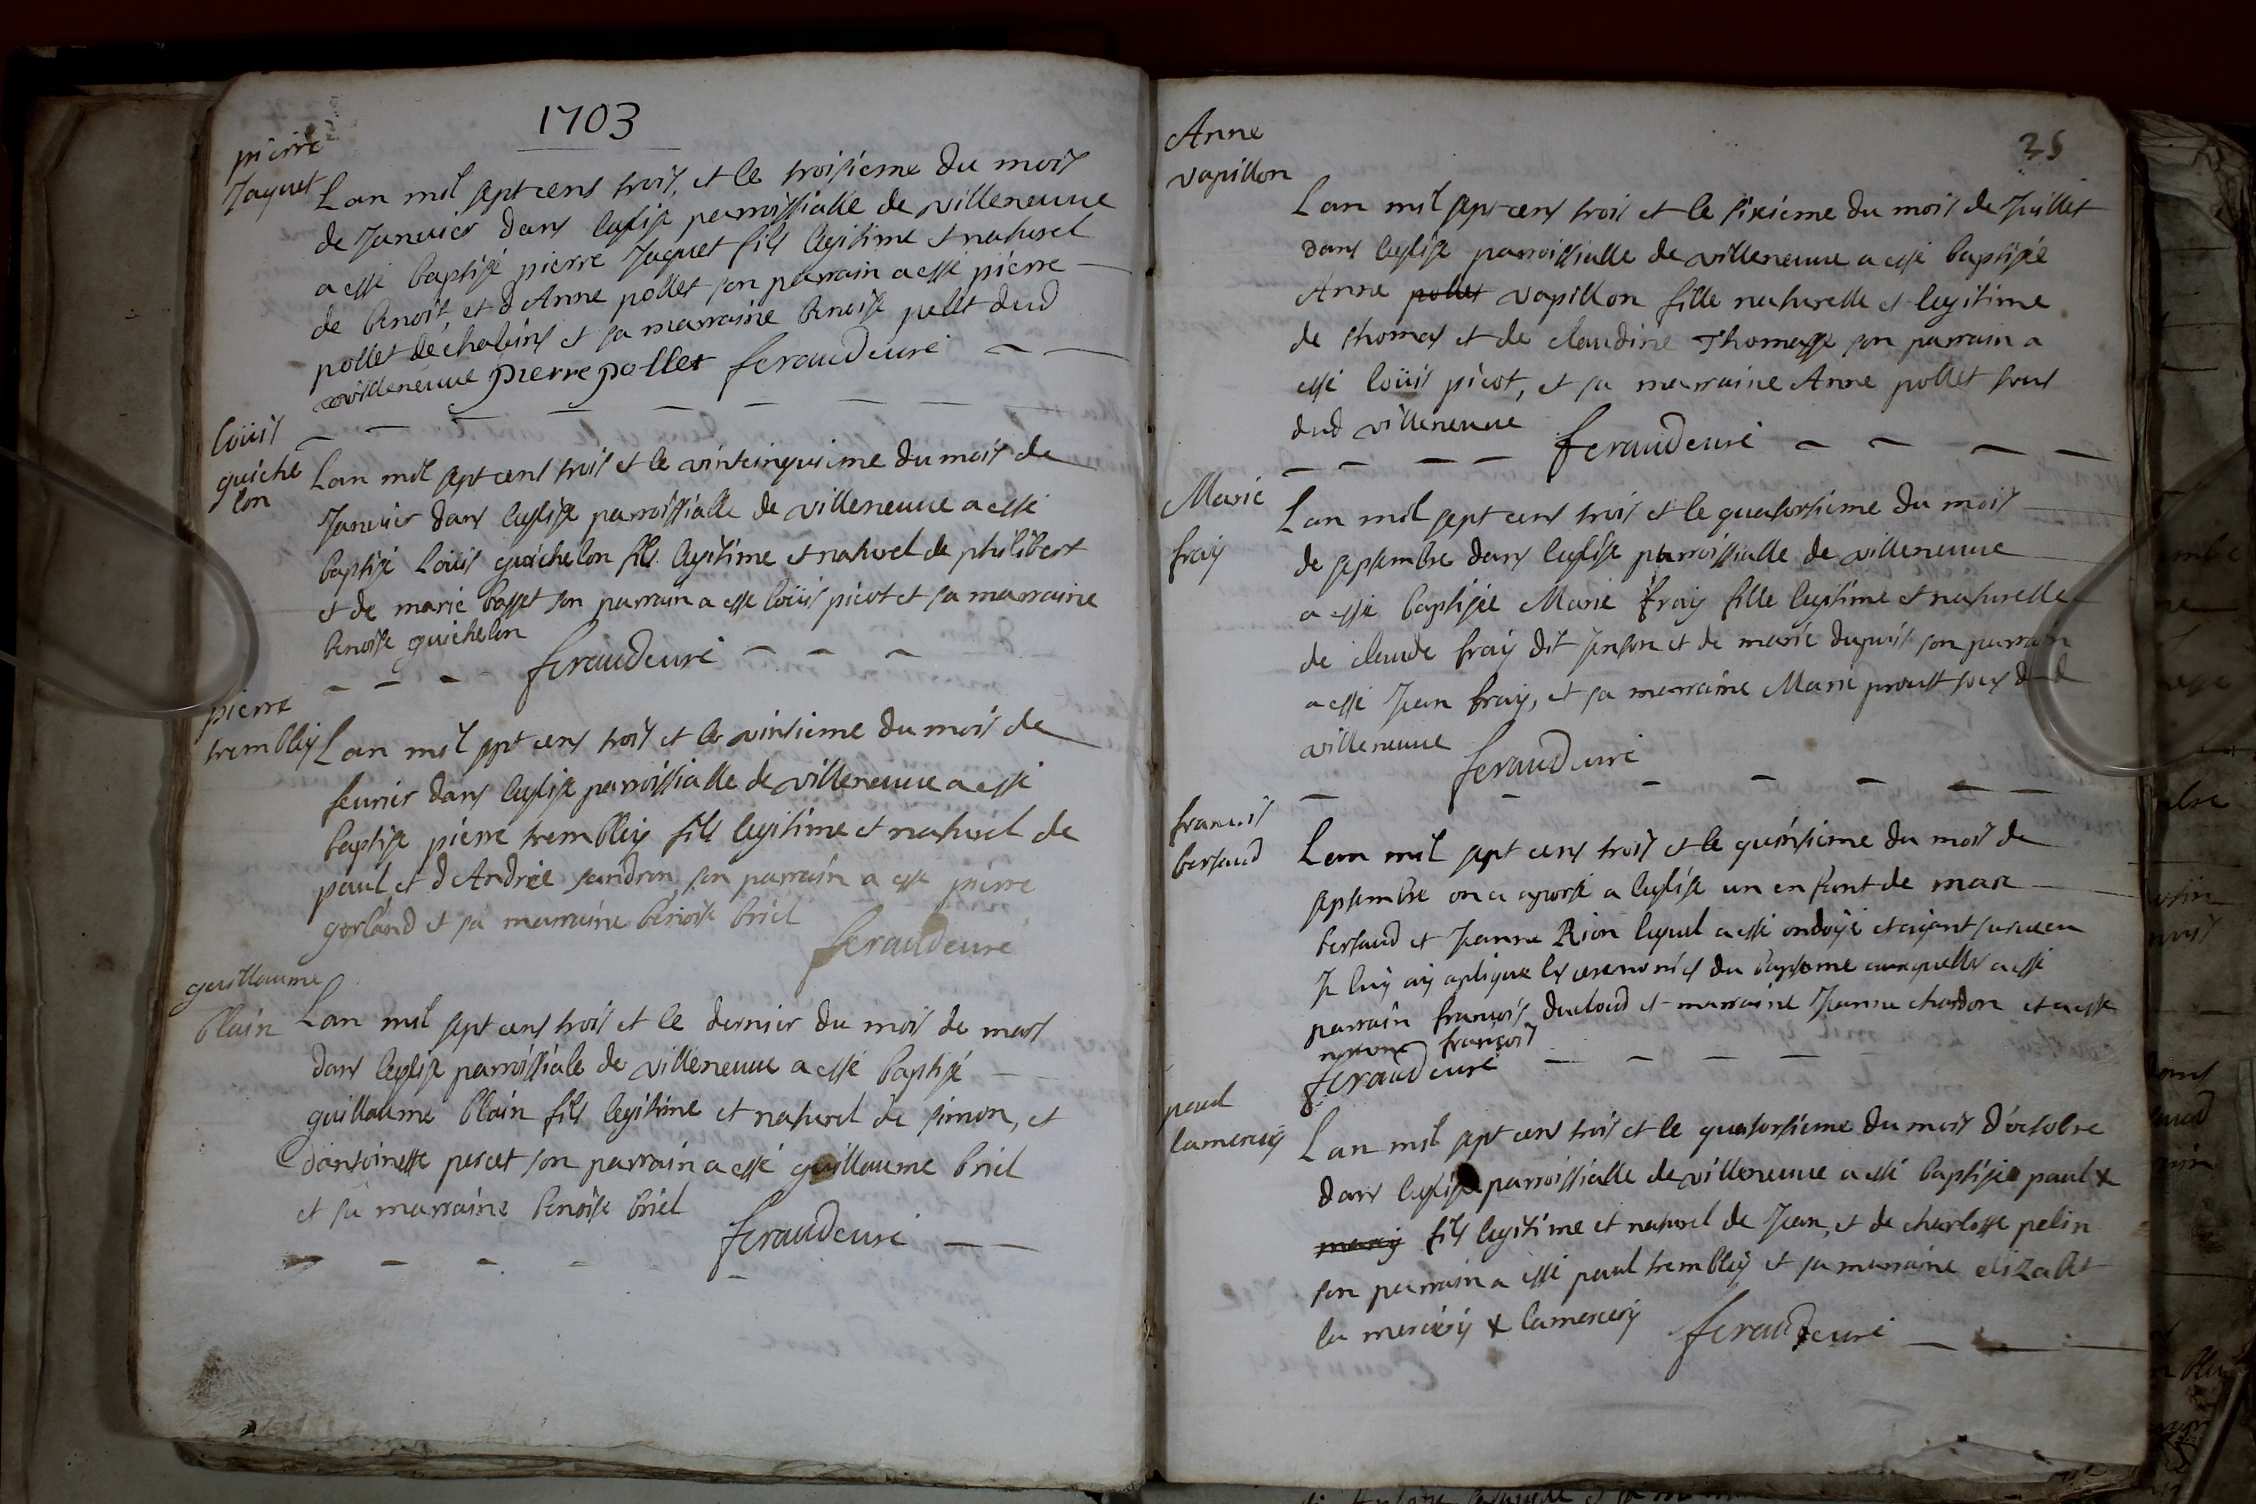 1703
pierre
Jaquet
Lan mil sept cens trois, et le troisieme du mois
de Janvier dans leglise parroissialle de villeneuve
a esté baptisé pierre Jaquet fils legitime et naturel
de benoit, et d Anne pollet son parrain a esté pierre
pollet de chaleins et sa marraine benoite pollet dud
villeneuve pierre pollet feraud curé
Loüis
guiche
lon
Lan mil sept cens trois et le vintcinquieme du mois de
Janvier dans leglise parroissialle de villeneuve a esté
baptisé Loüis guichelon fils legitime et naturel de philibert
et de marie basset son parrain a esté loüis picot et sa marraine
benoite guichelon
feraud curé
pierre
trembley
Lan mil sept cens trois et le vintieme du mois de
fevrier dans leglise parroissialle de villeneuve a esté
baptisé pierre trembley fils legitime et naturel de
paul, et d Andrée sandron son parrain a esté pierre
gorland et sa marraine benoite briel
feraud curé
guillaume
blain
Lan mil sept cens trois et le dernier du mois de mars
dans leglise parroissiale de villeneuve a esté baptisé
guillaume blain fils legitime et naturel de simon, et
dantoinette percet son parrain a esté guillaume briel
et sa marraine benoite briel
feraud curé
25
Anne
vapillon
Lan mil sept cens trois et le sixieme du mois de Juillet
dans leglise parroissialle de villeneuve a esté baptisée
Anne pollet vapillon fille naturelle et legitime
de thomas et de claudine Thomasse son parrain a
esté loüis picot, et sa marraine Anne pollet tous
dud villeneuve
feraud curé
Marie
fray
Lan mil sept cens trois et le quatorsieme du mois
de septembre dans leglise parroissialle de villeneuve
a esté baptisée Marie fray fille legitime et naturelle
de claude fray dit Jenson et de marie dupuis son parrain
a esté Jean fray, et sa marraine Marie proust tous dud
villeneuve
feraud curé
francois
bertaud
Lan mil sept cens trois et le quinsieme du mois de
septembre on a aporté a leglise un enfant de marc
bertaud et Jeanne Rion lequel a esté ondoyé et ayant survecu
Je luy ay apliqué les ceremonies du bapteme auxquelles a esté
parrain françois ducloud et marraine Jeanne chardon et a esté
nommé françois
feraud curé
paul
lamercery
Lan mil sept cens trois et le quatorsieme du mois d'octobre
dans leglise parroissialle de villeneuve a esté baptisé paul x
mercy fils legitime et naturel de Jean, et de charlotte pelin
son parrain a esté paul trembley et sa marraine elizabet
la merciery x lamercery
feraud curé